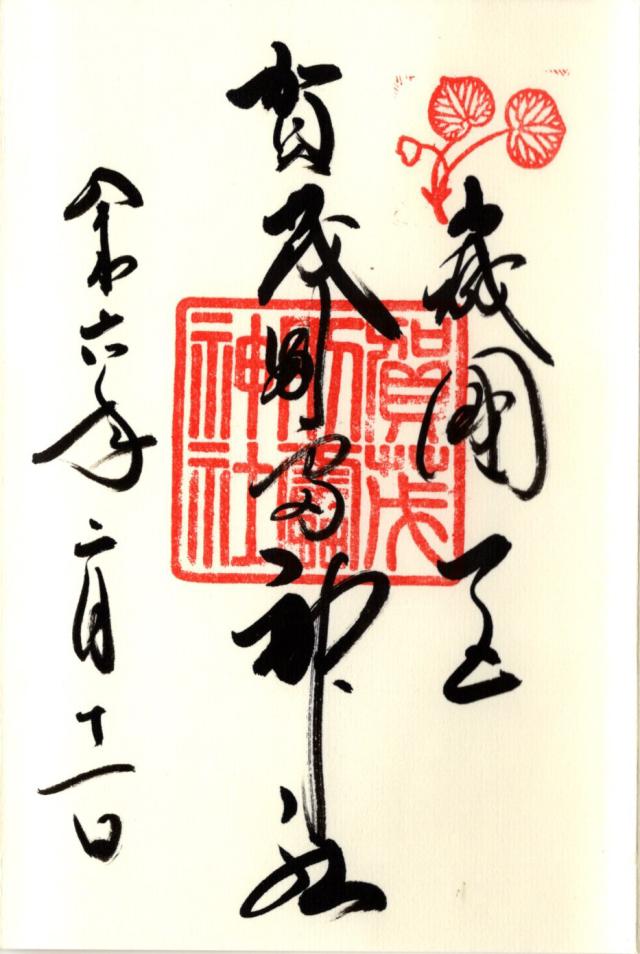 山城國一宮
賀茂別雷神社
賀茂別雷神社
令和六年二月十一日